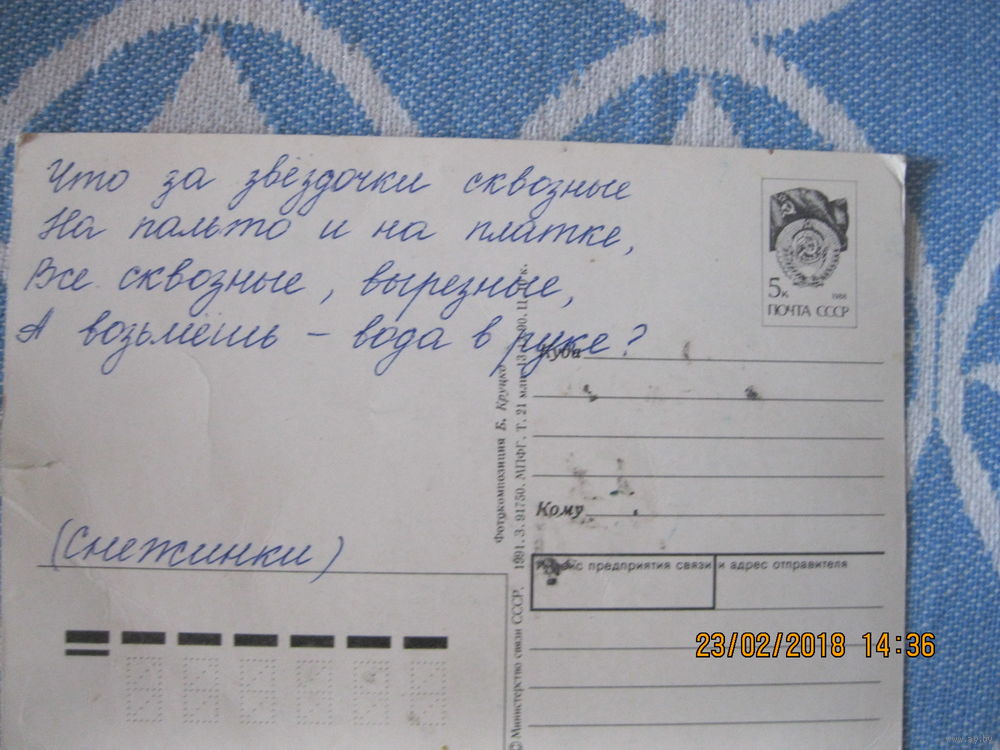 Что за звёздочки сквозные
На пальто и на платке,
Все сквозные, вырезные,
А возьмёшь – вода в руке?
(Снежинки)
5к 1988
ПОЧТА СССР
Куда
Кому
предприятия связи и адрес отправителя
Фотокомпозиция Б. Круцко
© Министерство связи СССР. 1991. З. 91750. МПФГ. Т. 21 млн.
23/02/2018 14:36
www.ay.by